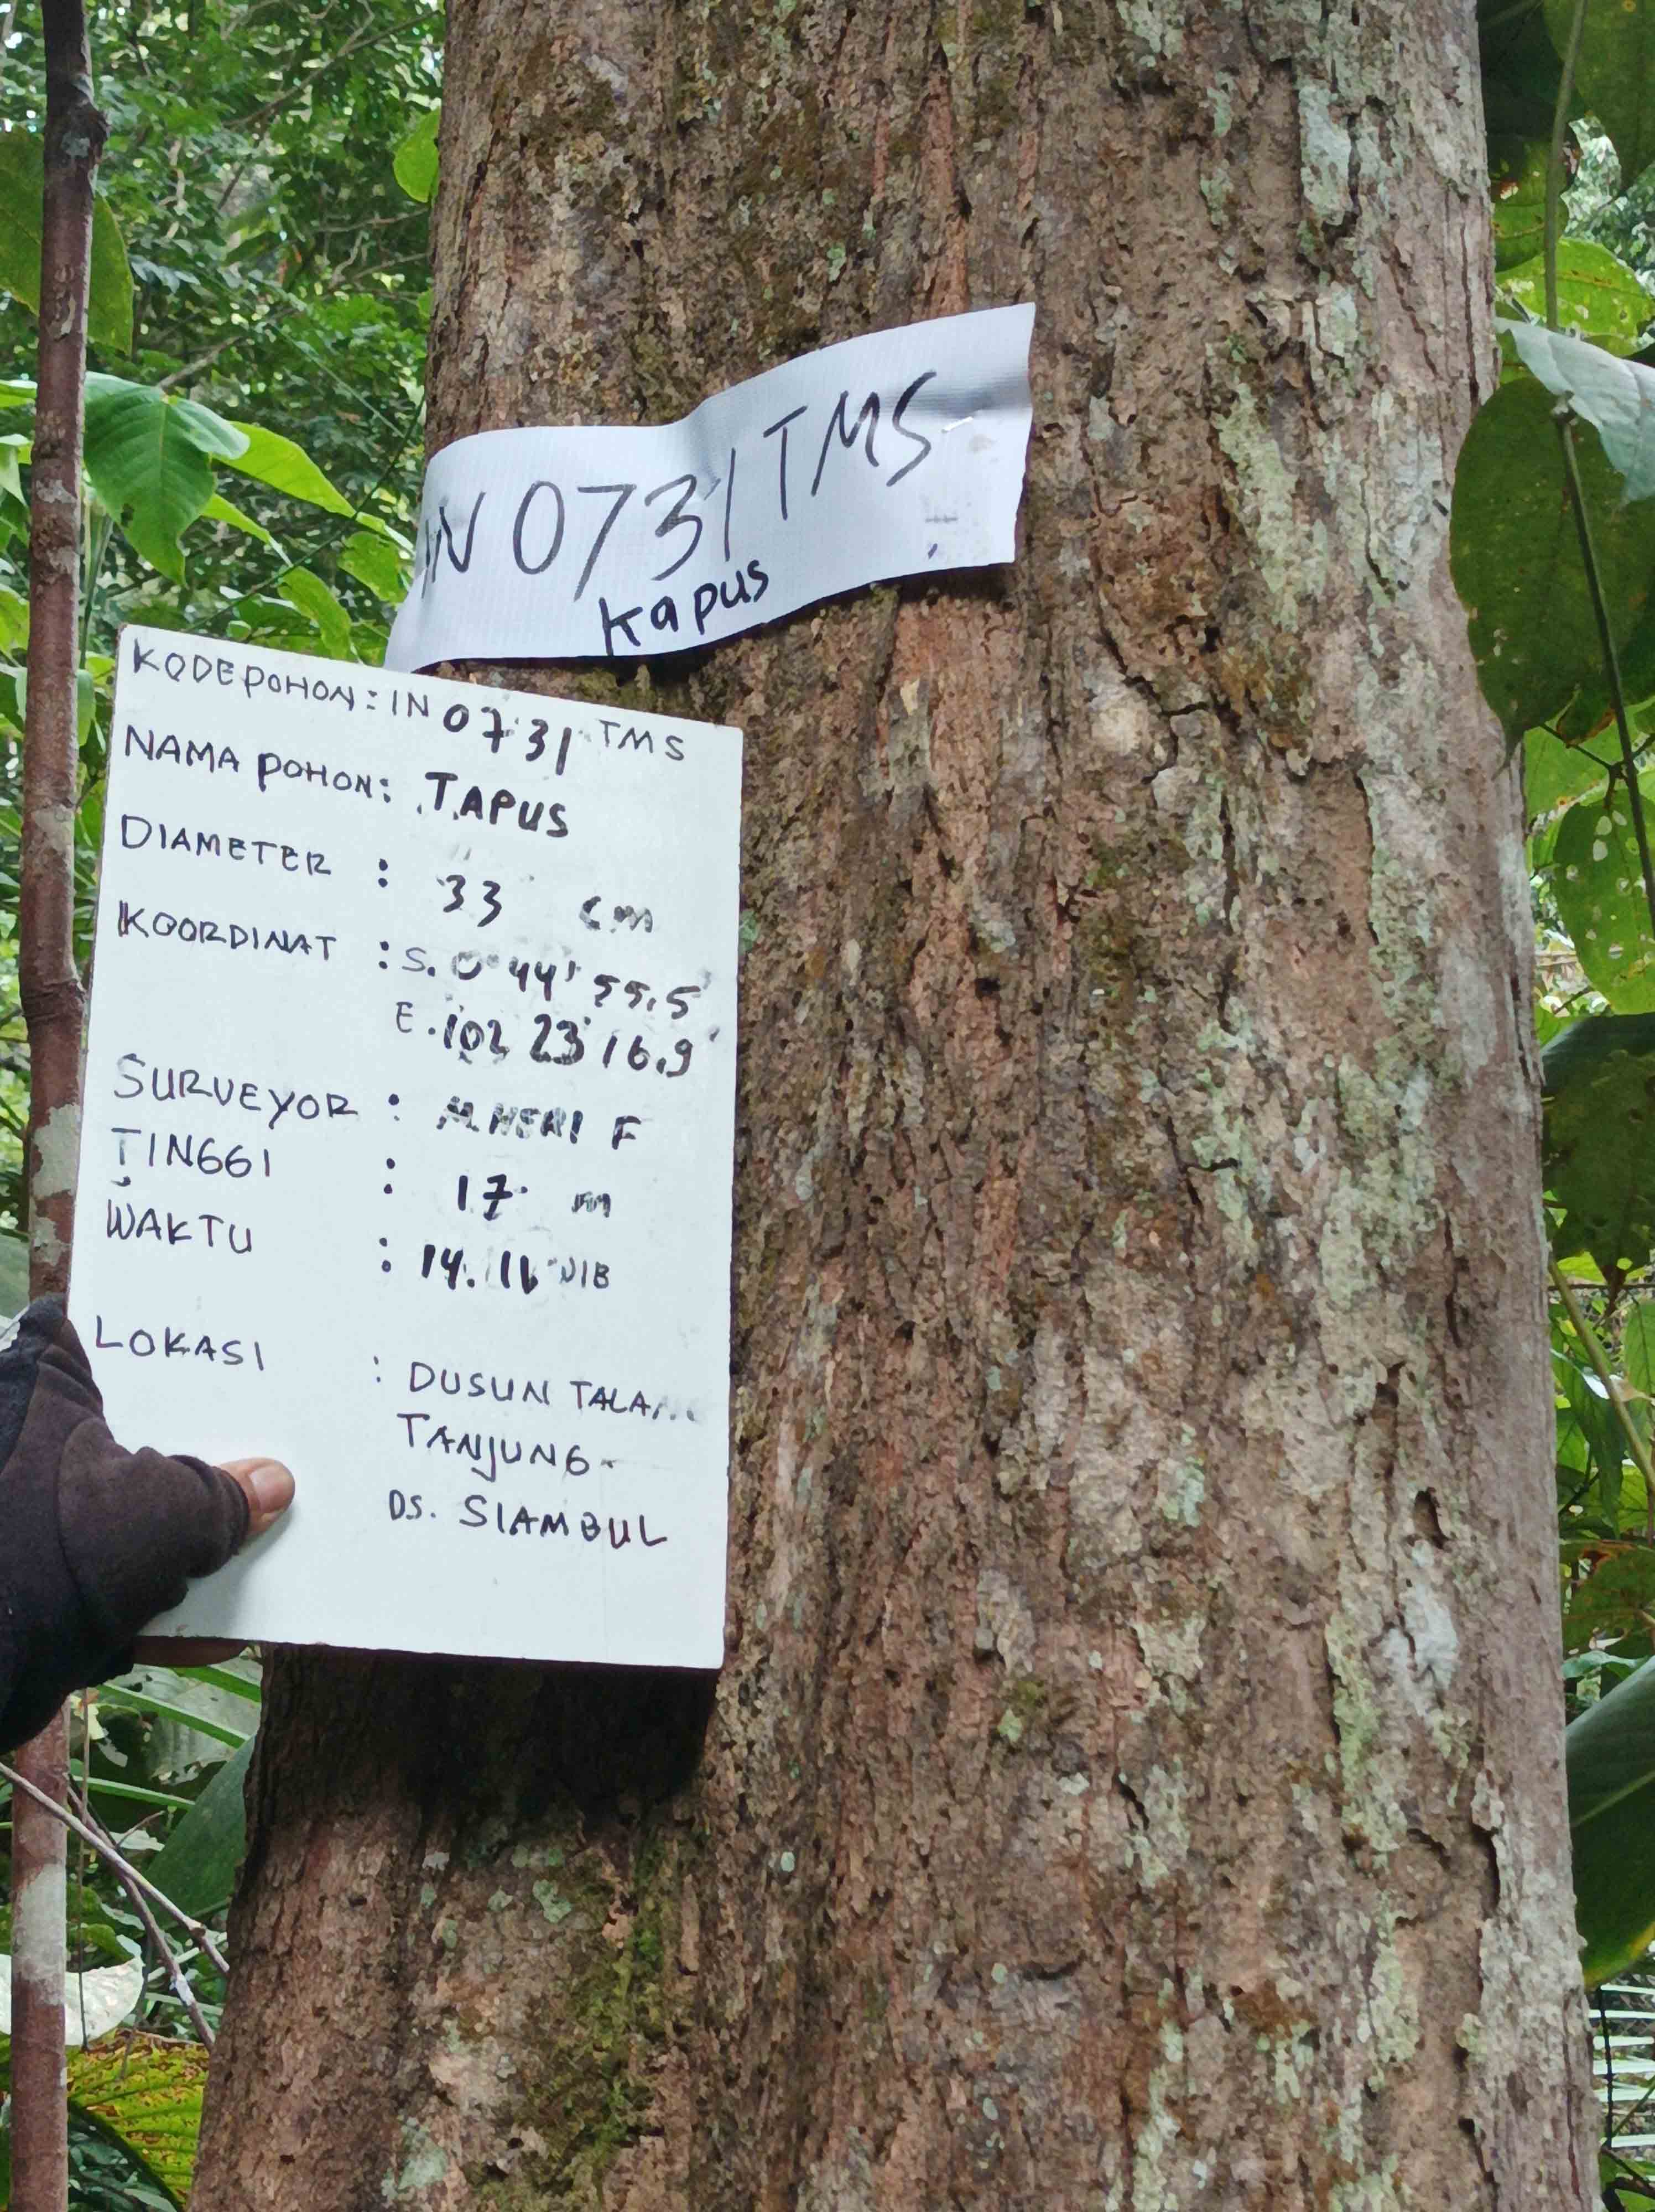 IN 0731 TMS
Kapus
KODE POHON : IN 0731 TMS
NAMA POHON : TAPUS
DIAMETER : 33 cm
KOORDINAT : S. 0° 44' 55,5"
E. 102 23' 16,9"
SURVEYOR : M. HERI F
TINGGI : 17 m
WAKTU : 14. WIB
LOKASI : DUSUN TALANG
TANJUNG
DS. SIAMBUL